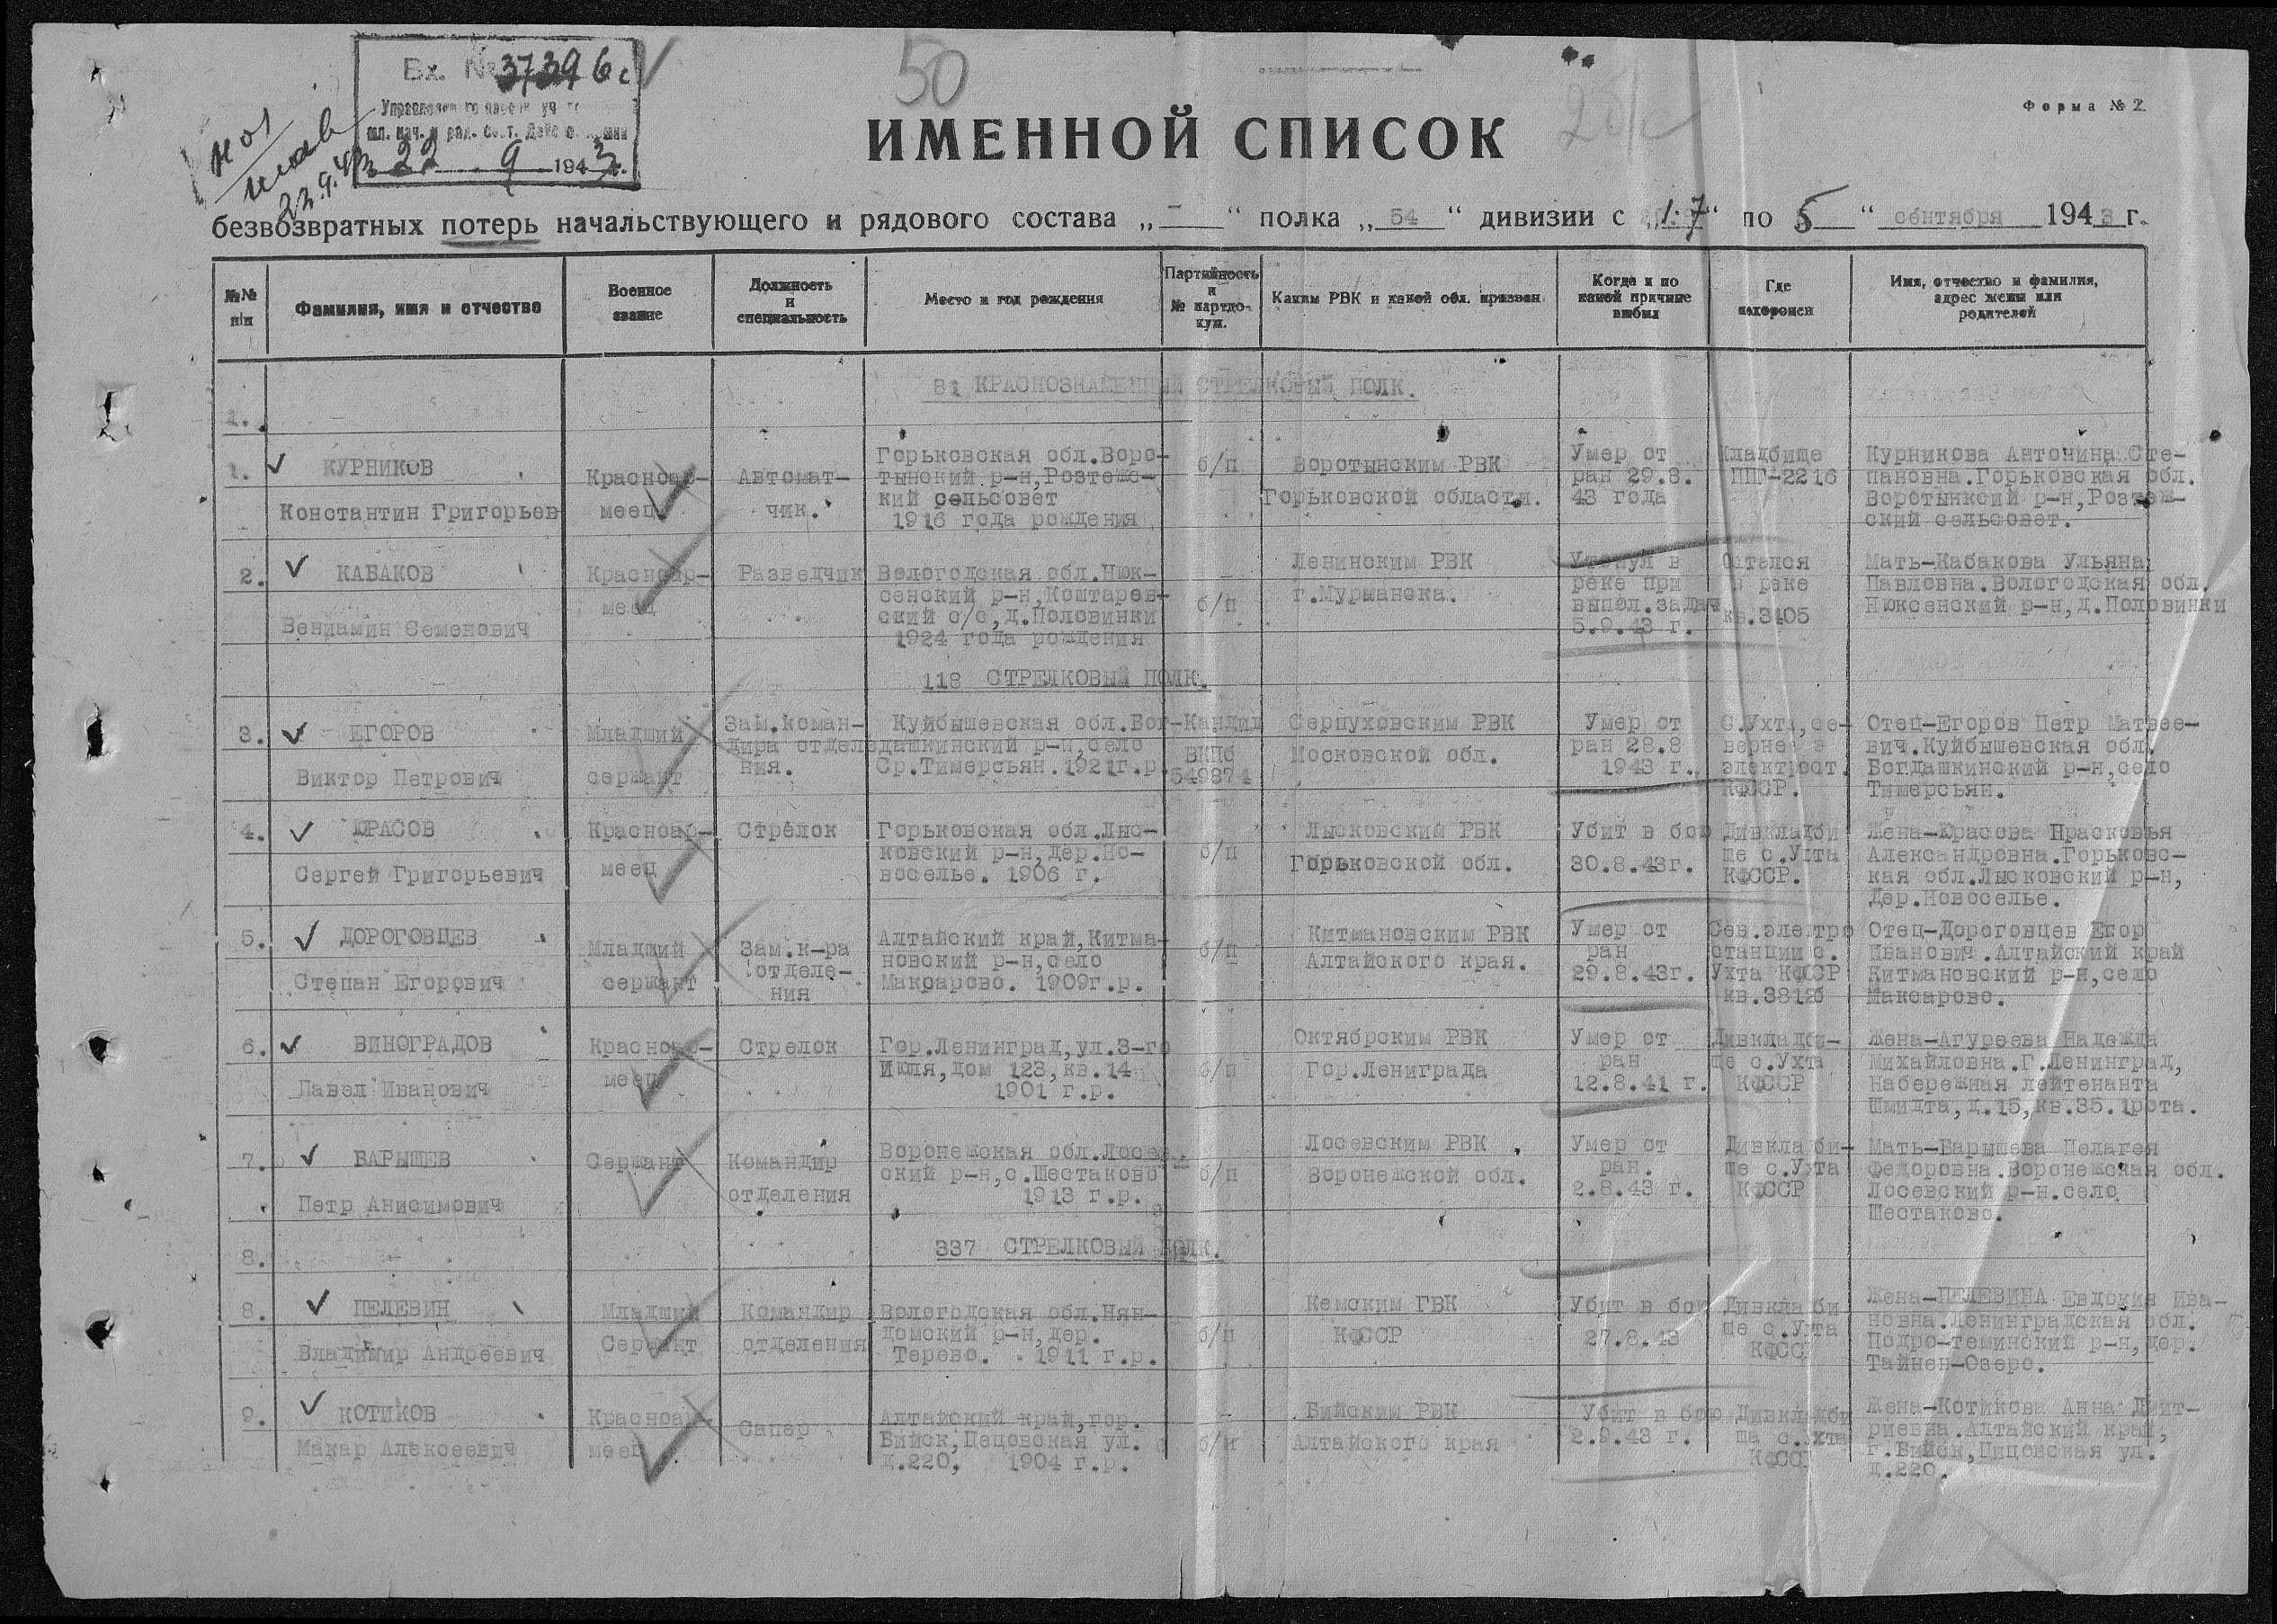 Вх. № 37396с
22 9 1943 г.
22.9.43
50
Форма № 2
ИМЕННОЙ СПИСОК
безвозвратных потерь начальствующего и рядового состава „ - “ полка „ 54 “ дивизии с „ 1.7 “ по 5 “ сентября 1943 г.
№№ п/п
Фамилия, имя и отчество
Военное звание
Должность и специальность
Место и год рождения
Партийность и № партдокум.
Каким РВК и какой обл. призван
Когда и по какой причине выбыл
Где похоронен
Имя, отчество и фамилия, адрес жены или родителей
81 КРАСНОЗНАМЕННЫЙ СТРЕЛКОВЫЙ ПОЛК.
1.
1. КУРНИКОВ
Константин Григорьев
Красноар-
меец
Автомат-
чик.
Горьковская обл.Воро-
тынский р-н,Розтеже-
кий сельсовет
1916 года рождения
б/п
Воротынским РВК
Горьковской области.
Умер от
ран 29.8.
43 года
Кладбище
ППГ-2216
Курникова Антонина Сте-
пановна.Горьковская обл.
Воротынкский р-н,Розтеж-
ский сельсовет.
2. КАБАКОВ
Вениамин Семенович
Красноар-
меец
Разведчик
Вологодская обл.Нюк-
сенский р-н,Коштарев-
ский с/с,д.Половинки
1924 года рождения
б/п
Ленинским РВК
г.Мурманска.
Утонул в
реке при
выпол.задач
5.9.43 г.
Остался
в реке
кв.3405
Мать-Кабакова Ульяна
Павловна.Вологодская обл.
Нюксенский р-н,д.Половинки
118 СТРЕЛКОВЫЙ ПОЛК.
3. ЕГОРОВ
Виктор Петрович
Младший
сержант
Зам.коман-
дира отделе
ния.
Куйбышевская обл.Бог-
дашкинский р-н,село
Ср.Тимерсьян.1921г.р.
Кандид
ВКПб
549874
Серпуховским РВК
Московской обл.
Умер от
ран 28.8
1943 г.
С.Ухта,се-
вернее э
электрост.
КФССР.
Отец-Егоров Петр Матвее-
вич.Куйбышевская обл.
Богдашкинский р-н,село
Тимерсьян.
4. ЮРАСОВ
Сергей Григорьевич
Красноар-
меец
Стрелок
Горьковская обл.Лыс-
ковский р-н,дер.Но-
воселье. 1906 г.
б/п
Лысковский РВК
Горьковской обл.
Убит в бою
30.8.43г.
Дивкладби
ще с.Ухта
КФССР.
Жена-Юрасова Прасковья
Александровна.Горьковс-
кая обл.Лысковский р-н,
Дер.Новоселье.
5. ДОРОГОВЦЕВ
Степан Егорович
Младший
сержант
Зам.к-ра
отделе-
ния
Алтайский край,Китма-
новский р-н,село
Макрарово. 1909г.р.
б/п
Китмановским РВК
Алтайского края.
Умер от
ран
29.8.43г.
Сев.электро
станции с.
Ухта КФССР
кв.3812б
Отец-Дороговцев Егор
Иванович.Алтайский край
Китмановский р-н,село
Максарово.
6. ВИНОГРАДОВ
Павел Иванович
Красноар-
меец
Стрелок
Гор.Ленинград,ул.3-го
Июля,дом 123,кв.14
1901 г.р.
б/п
Октябрским РВК
Гор.Лениграда
Умер от
ран
12.8.41 г.
Дивкладби-
ще с.Ухта
КФССР
Жена-Агуреева Надежда
Михайловна.Г.Ленинград,
Набережная лейтенанта
Шмидта,д.15,кв.35.1рота.
7. БАРЫШЕВ
Петр Анисимович
Сержант
Командир
отделения
Воронежская обл.Лосев
ский р-н,с.Шестаково
1913 г.р.
б/п
Лосевским РВК
Воронежской обл.
Умер от
ран.
2.8.43 г.
Дивкладби-
ще с.Ухта
КФССР
Мать-Барышева Пелагея
Федоровна.Воронежская обл.
Лосевский р-н.село
Шестаково.
8.
337 СТРЕЛКОВЫЙ ПОЛК.
8. ПЕЛЕВИН
Владимир Андреевич
Младший
Сержант
Командир
отделения
Вологодская обл.Нян-
домский р-н,дер.
Терево. 1911 г.р.
б/п
Кемским ГВК
КФССР
Убит в бою
27.8.43
Дивкладби
ще с.Ухта
КФСС
Жена-ПЕЛЕВИНА Евдокия Ива-
новна.Ленинградская обл.
Подро-теминский р-н,дер.
Тайнен-Озеро.
9. КОТИКОВ
Макар Алексеевич
Красноар-
меец
Сапер
Алтайский край,гор.
Бийск,Цецовская ул.
д.220, 1904 г.р.
б/п
Бийским РВК
Алтайского края
Убит в бою
2.9.43 г.
Дивкладби
ща с.Ухта
КФСС
Жена-Котикова Анна Дмит-
риевна.Алтайский край,
г.Бийск,Цицовская ул.
д.220.